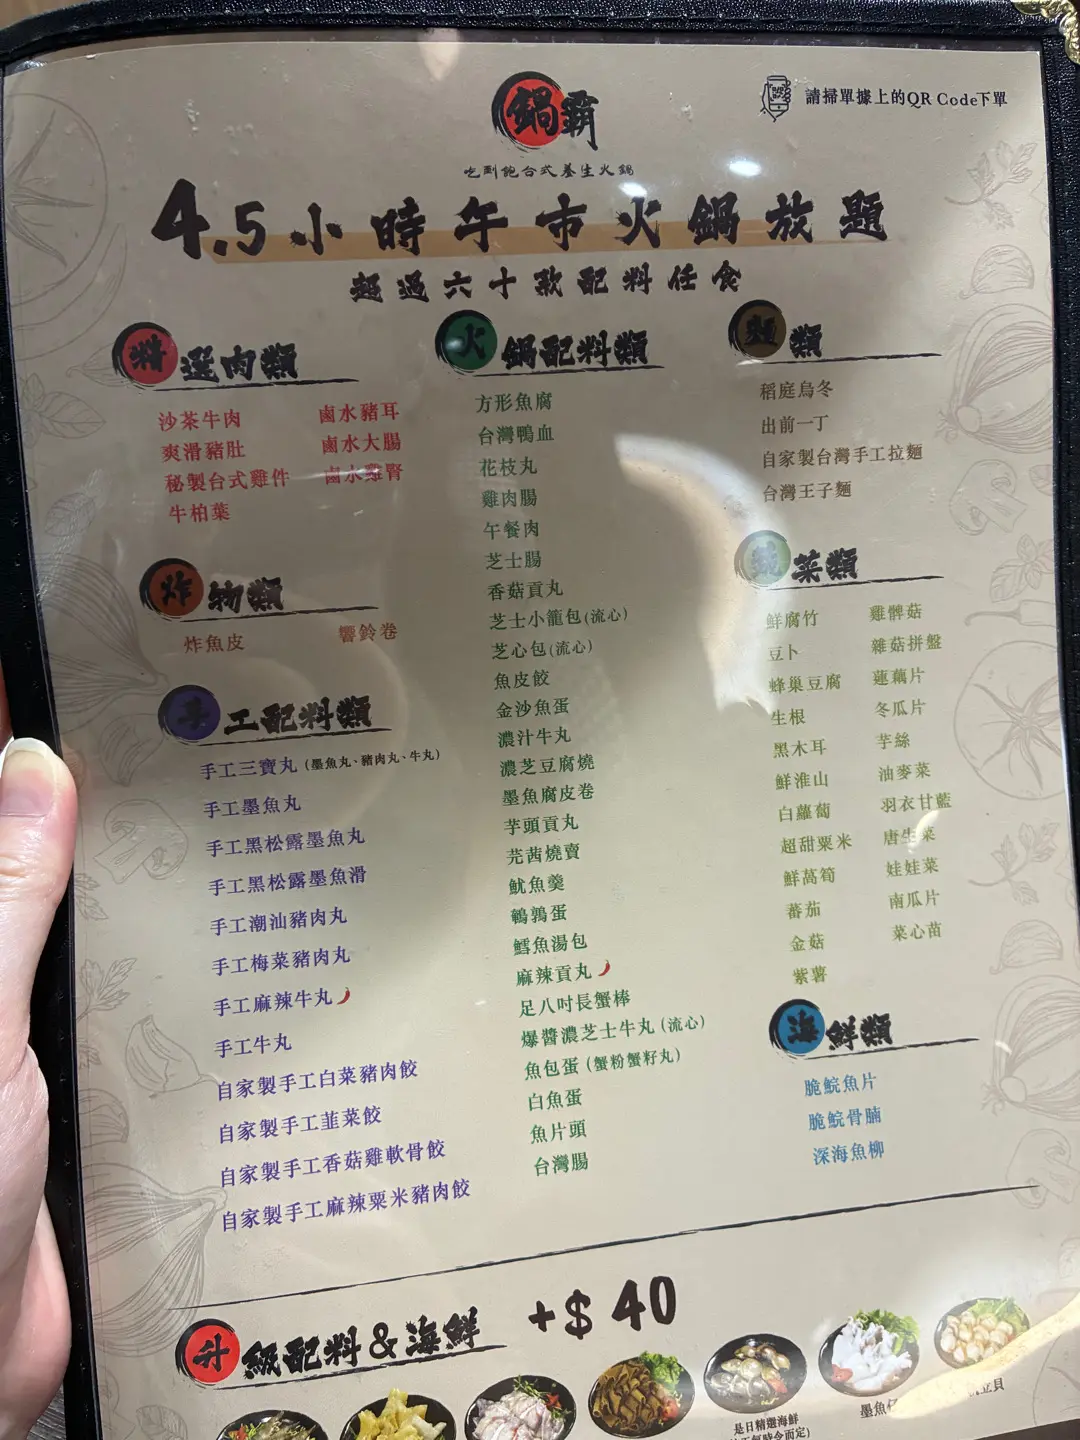 鍋霸
吃到飽台式養生火鍋
請掃單據上的QR Code下單
4.5小時午市火鍋放題
超過六十款配料任食
精選肉類
沙茶牛肉 鹵水豬耳
爽滑豬肚 鹵水大腸
秘製台式雞件 鹵水雞腎
牛柏葉
炸物類
炸魚皮 響鈴卷
手工配料類
手工三寶丸 (墨魚丸、豬肉丸、牛丸)
手工墨魚丸
手工黑松露墨魚丸
手工黑松露墨魚滑
手工潮汕豬肉丸
手工梅菜豬肉丸
手工麻辣牛丸
手工牛丸
自家製手工白菜豬肉餃
自家製手工韮菜餃
自家製手工香菇雞軟骨餃
自家製手工麻辣粟米豬肉餃
火鍋配料類
方形魚腐
台灣鴨血
花枝丸
雞肉腸
午餐肉
芝士腸
香菇貢丸
芝士小籠包(流心)
芝心包(流心)
魚皮餃
金沙魚蛋
濃汁牛丸
濃芝豆腐燒
墨魚腐皮卷
芋頭貢丸
芫茜燒賣
魷魚羹
鵪鶉蛋
鱈魚湯包
麻辣貢丸
足八吋長蟹棒
爆醬濃芝士牛丸 (流心)
魚包蛋 (蟹粉蟹籽丸)
白魚蛋
魚片頭
台灣腸
麵類
稻庭烏冬
出前一丁
自家製台灣手工拉麵
台灣王子麵
蔬菜類
鮮腐竹 雞髀菇
豆卜 雜菇拼盤
蜂巢豆腐 蓮藕片
生根 冬瓜片
黑木耳 芋絲
鮮淮山 油麥菜
白蘿蔔 羽衣甘藍
超甜粟米 唐生菜
鮮萵筍 娃娃菜
蕃茄 南瓜片
金菇 菜心苗
紫薯
海鮮類
脆鯇魚片
脆鯇骨腩
深海魚柳
升級配料&海鮮 +$40
是日精選海鮮
時令而定)
墨魚仔